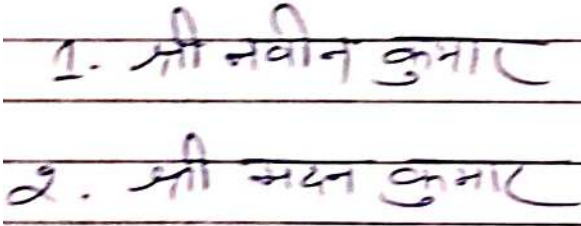 1. श्री नवीन कुमार
2. श्री मदन कुमार